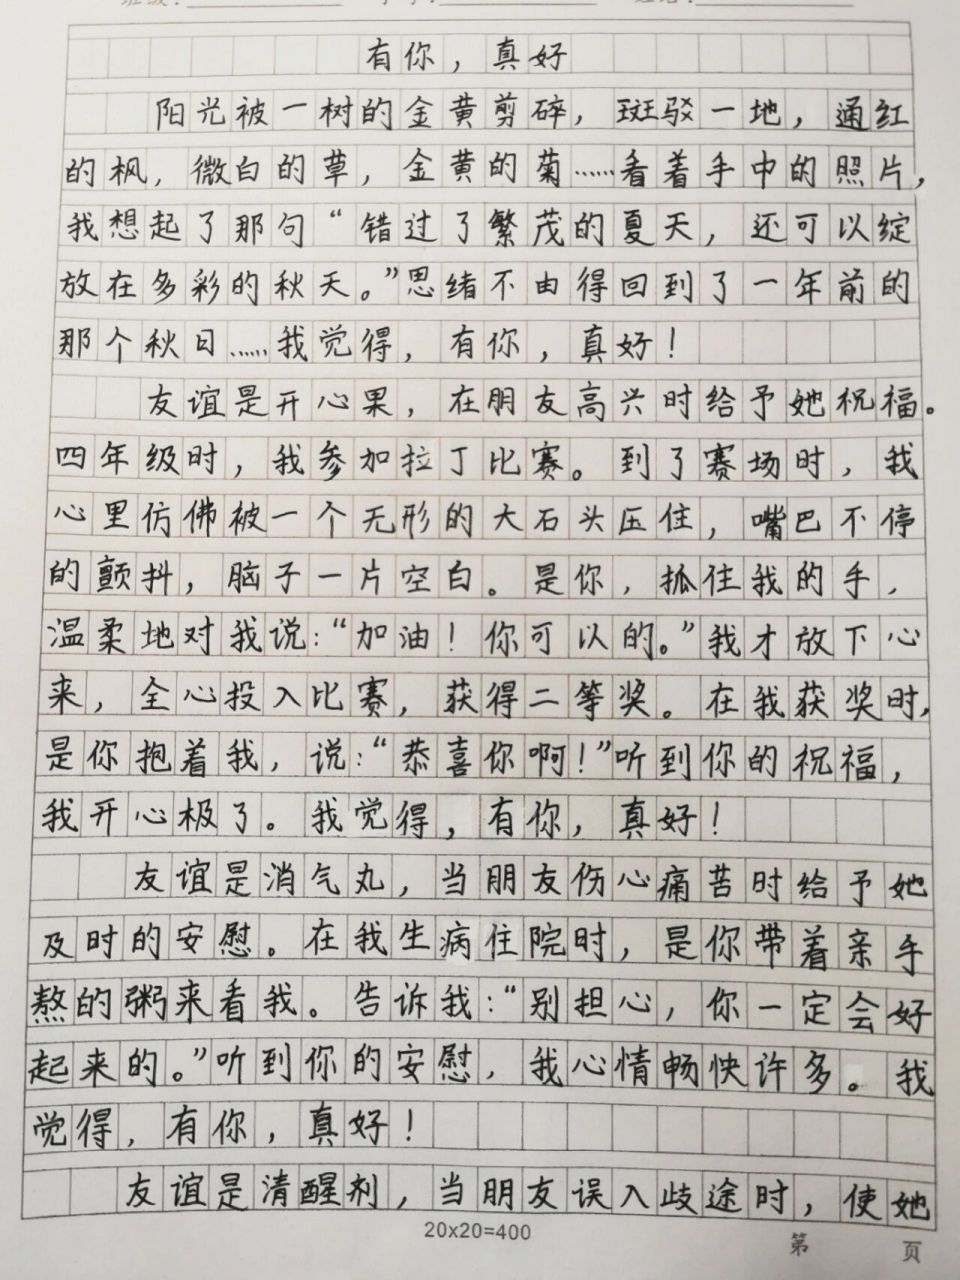 有你，真好
阳光被一树的金黄剪碎，斑驳一地，通红
的枫，微白的草，金黄的菊……看着手中的照片，
我想起了那句“错过了繁茂的夏天，还可以绽
放在多彩的秋天。”思绪不由得回到了一年前的
那个秋日……我觉得，有你，真好！
友谊是开心果，在朋友高兴时给予她祝福。
四年级时，我参加拉丁比赛。到了赛场时，我
心里仿佛被一个无形的大石头压住，嘴巴不停
的颤抖，脑子一片空白。是你，抓住我的手，
温柔地对我说：“加油！你可以的。”我才放下心
来，全心投入比赛，获得二等奖。在我获奖时，
是你抱着我，说：“恭喜你啊！”听到你的祝福，
我开心极了。我觉得，有你，真好！
友谊是消气丸，当朋友伤心痛苦时给予她
及时的安慰。在我生病住院时，是你带着亲手
熬的粥来看我。告诉我：“别担心，你一定会好
起来的。”听到你的安慰，我心情畅快许多。我
觉得，有你，真好！
友谊是清醒剂，当朋友误入歧途时，使她
20x20=400
第 页